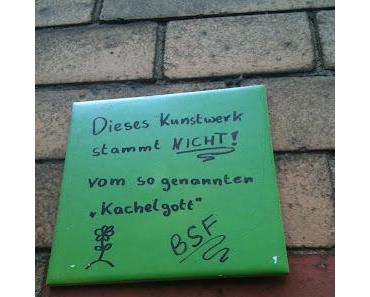 Dieses Kunstwerk
stammt NICHT!
vom sogenannten
„Kachelgott"
BSF